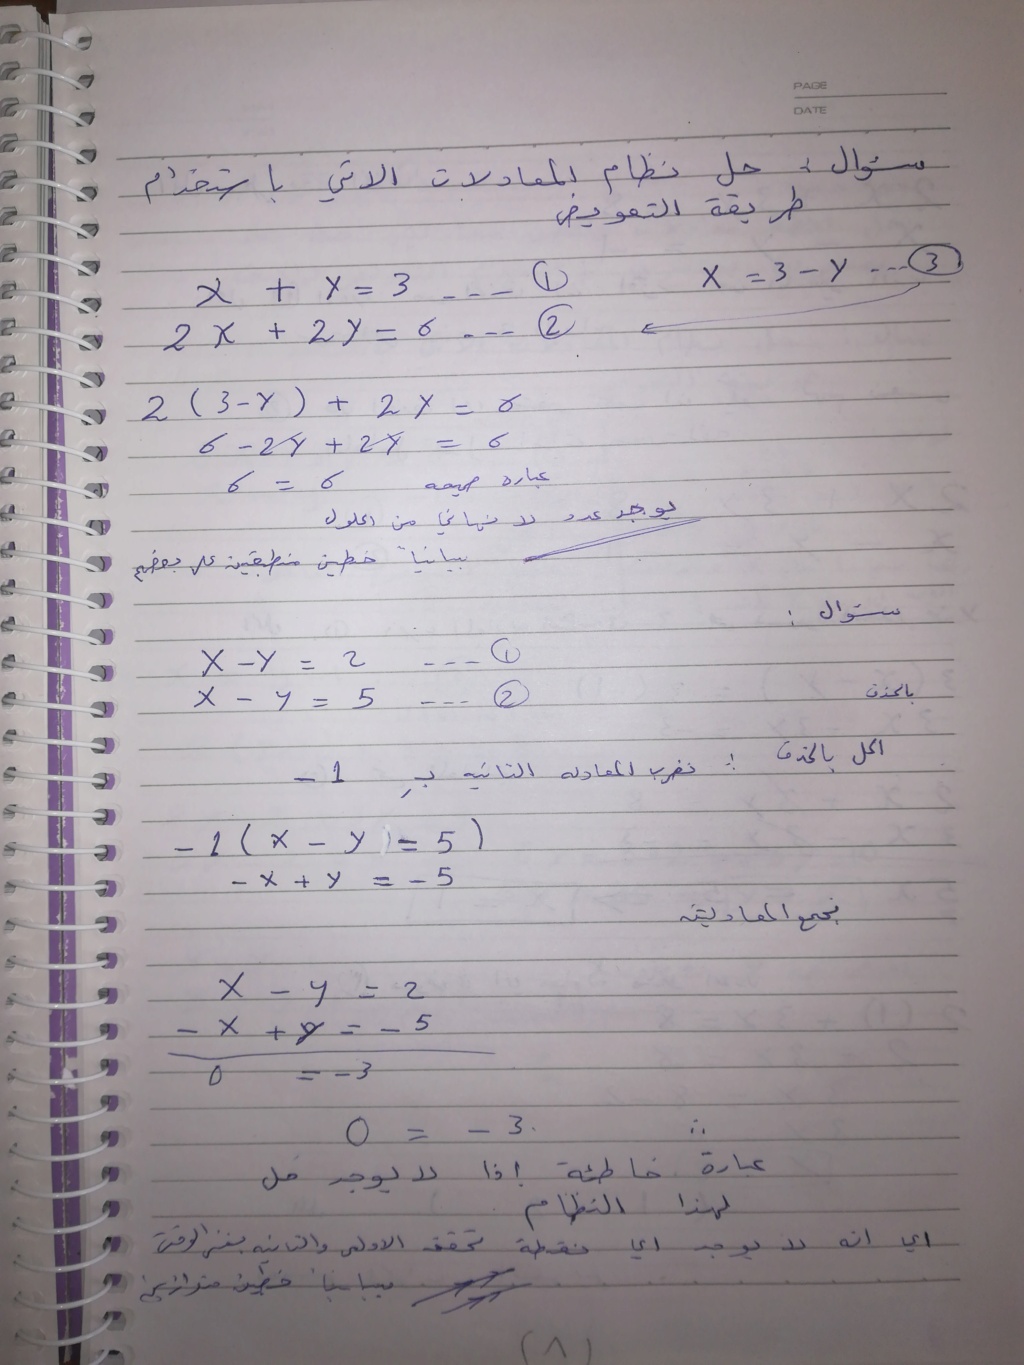 PAGE
DATE
سئوال : حل نظام المعادلات الاتي باستخدام
طريقة التعويض
x + y = 3 --- ① x = 3 - y --- ③
2x + 2y = 6 --- ②
2 (3-y) + 2y = 6
6 - 2y + 2y = 6
6 = 6 عبارة صحيحه
يوجد عدد لا نهائي من الحلول
بيانياً خطين منطبقين على بعضهم
سئوال :
x - y = 2 --- ①
x - y = 5 --- ② بالحذف
الحل بالحذف : نضرب المعادله الثانيه بـ -1
-1 ( x - y = 5 )
-x + y = -5
نجمع المعادلتين
x - y = 2
- x + y = - 5
0 = -3
∴ 0 = -3
عبارة خاطئة إذا لا يوجد حل
لهذا النظام
اي انه لا يوجد اي نقطة تحقق الاولى والثانيه بنفس الوقت
بيانياً خطين متوازيين
(٨)